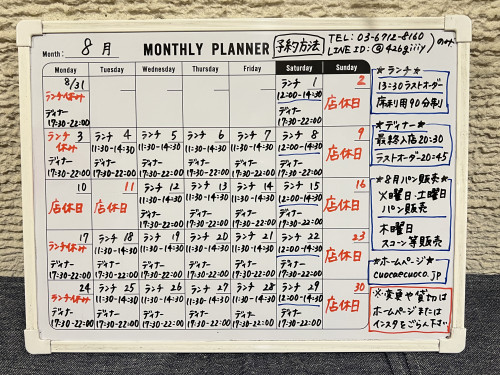 Month: 8月 MONTHLY PLANNER 予約方法 TEL: 03-6712-8160
LINE ID: @426giiiy のみ
Monday Tuesday Wednesday Thursday Friday Saturday Sunday
8/31 ランチ休み ディナー 17:30-22:00
ランチ 1 12:00-14:30 ディナー 17:30-22:00
2 店休日
ランチ 3 休み ディナー 17:30-22:00
ランチ 4 11:30-14:30 ディナー 17:30-22:00
ランチ 5 11:30-14:30 ディナー 17:30-22:00
ランチ 6 11:30-14:30 ディナー 17:30-22:00
ランチ 7 11:30-14:30 ディナー 17:30-22:00
ランチ 8 12:00-14:30 ディナー 17:30-22:00
9 店休日
10 店休日
11 店休日
ランチ 12 11:30-14:30 ディナー 17:30-22:00
ランチ 13 11:30-14:30 ディナー 17:30-22:00
ランチ 14 11:30-14:30 ディナー 17:30-22:00
ランチ 15 12:00-14:30 ディナー 17:30-22:00
16 店休日
ランチ 17 休み ディナー 17:30-22:00
ランチ 18 11:30-14:30 ディナー 17:30-22:00
ランチ 19 11:30-14:30 ディナー 17:30-22:00
ランチ 20 11:30-14:30 ディナー 17:30-22:00
ランチ 21 11:30-14:30 ディナー 17:30-22:00
ランチ 22 12:00-14:30 ディナー 17:30-22:00
23 店休日
24 ランチ休み ディナー 17:30-22:00
ランチ 25 11:30-14:30 ディナー 17:30-22:00
ランチ 26 11:30-14:30 ディナー 17:30-22:00
ランチ 27 11:30-14:30 ディナー 17:30-22:00
ランチ 28 11:30-14:30 ディナー 17:30-22:00
ランチ 29 12:00-14:30 ディナー 17:30-22:00
30 店休日
★ランチ★
13:30ラストオーダー
席利用90分制
★ディナー★
最終入店20:30
ラストオーダー20:45
★8月パン販売★
火曜日・土曜日
パン販売
木曜日
スコーン等販売
★ホームページ★
cuocaecuoco.jp
※変更や貸切は
ホームページまたは
インスタをごらん下さい